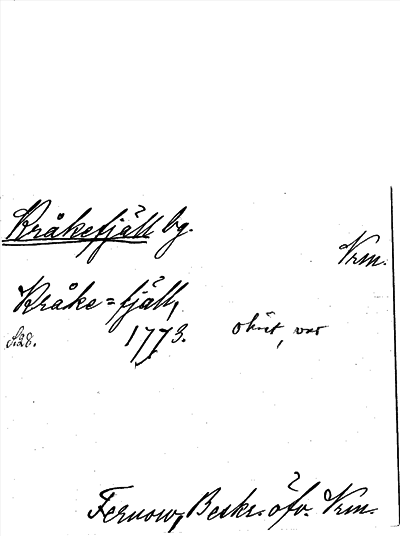 Kråkefjäll bg.
Vrm.
Kråke=fjäll,
1773. okört, var
Fernow, Beskr. öfv. Vrm.